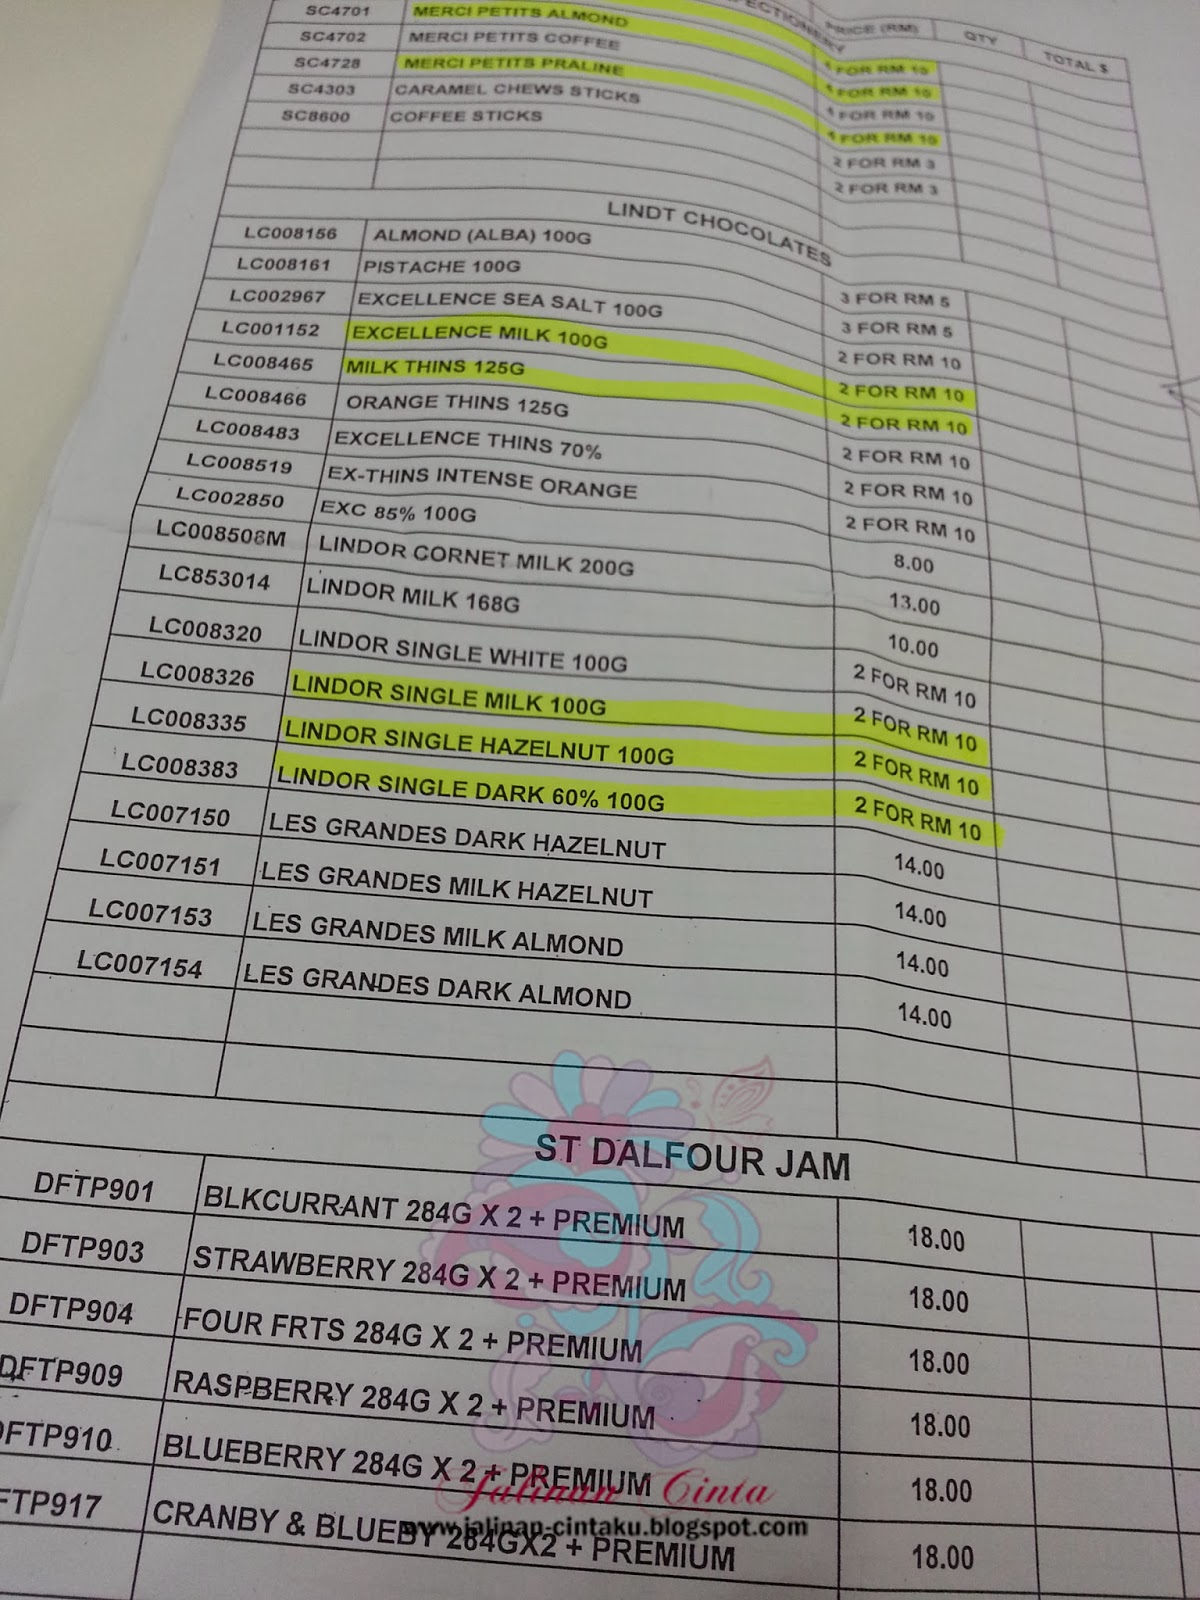 PRICE (RM) QTY TOTAL $
SC4701 MERCI PETITS ALMOND 4 FOR RM 10
SC4702 MERCI PETITS COFFEE 4 FOR RM 10
SC4728 MERCI PETITS PRALINE 4 FOR RM 10
SC4303 CARAMEL CHEWS STICKS 2 FOR RM 3
SC8600 COFFEE STICKS 2 FOR RM 3
LINDT CHOCOLATES
LC008156 ALMOND (ALBA) 100G 3 FOR RM 5
LC008161 PISTACHE 100G 3 FOR RM 5
LC002967 EXCELLENCE SEA SALT 100G 2 FOR RM 10
LC001152 EXCELLENCE MILK 100G 2 FOR RM 10
LC008465 MILK THINS 125G 2 FOR RM 10
LC008466 ORANGE THINS 125G 2 FOR RM 10
LC008483 EXCELLENCE THINS 70% 2 FOR RM 10
LC008519 EX-THINS INTENSE ORANGE 2 FOR RM 10
LC002850 EXC 85% 100G 8.00
LC008508M LINDOR CORNET MILK 200G 13.00
LC853014 LINDOR MILK 168G 10.00
LC008320 LINDOR SINGLE WHITE 100G 2 FOR RM 10
LC008326 LINDOR SINGLE MILK 100G 2 FOR RM 10
LC008335 LINDOR SINGLE HAZELNUT 100G 2 FOR RM 10
LC008383 LINDOR SINGLE DARK 60% 100G 2 FOR RM 10
LC007150 LES GRANDES DARK HAZELNUT 14.00
LC007151 LES GRANDES MILK HAZELNUT 14.00
LC007153 LES GRANDES MILK ALMOND 14.00
LC007154 LES GRANDES DARK ALMOND 14.00
ST DALFOUR JAM
DFTP901 BLKCURRANT 284G X 2 + PREMIUM 18.00
DFTP903 STRAWBERRY 284G X 2 + PREMIUM 18.00
DFTP904 FOUR FRTS 284G X 2 + PREMIUM 18.00
DFTP909 RASPBERRY 284G X 2 + PREMIUM 18.00
DFTP910 BLUEBERRY 284G X 2 + PREMIUM 18.00
FTP917 CRANBY & BLUEBY 284GX2 + PREMIUM 18.00
Jalinan Cinta
www.jalinan-cintaku.blogspot.com